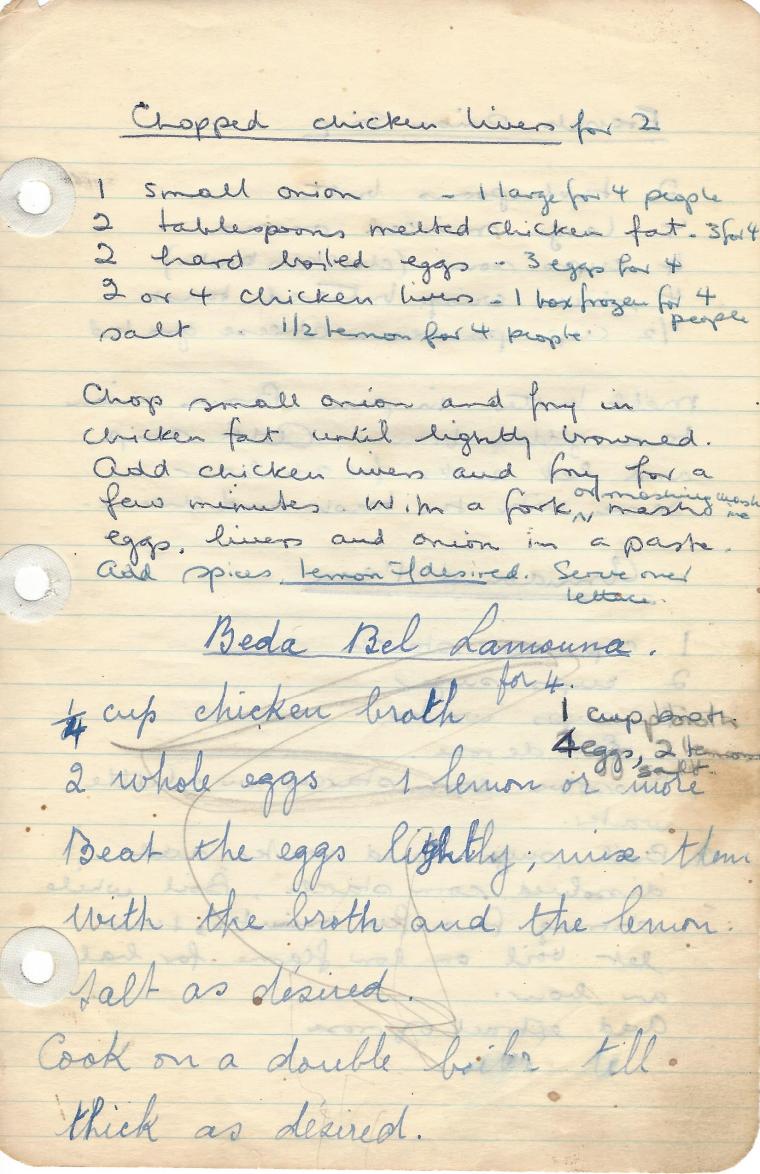 Chopped chicken livers for 2
1 small onion - 1 large for 4 people
2 tablespoons melted chicken fat - 3 for 4
2 hard boiled eggs - 3 eggs for 4
2 or 4 chicken livers - 1 box frozen for 4 people
salt 1/2 lemon for 4 people
Chop small onion and fry in
chicken fat until lightly browned.
Add chicken livers and fry for a
few minutes With a fork, or mashing mash
eggs, livers and onion in a paste.
Add spices, lemon if desired. Serve over
lettuce.
Beda Bel Lamouna.
for 4.
1/4 cup chicken broth 1 cup broth
4 eggs, 2 lemons
salt
2 whole eggs 1 lemon or more
Beat the eggs lightly; mix them
with the broth and the lemon.
Salt as desired.
Cook on a double boiler till
thick as desired.